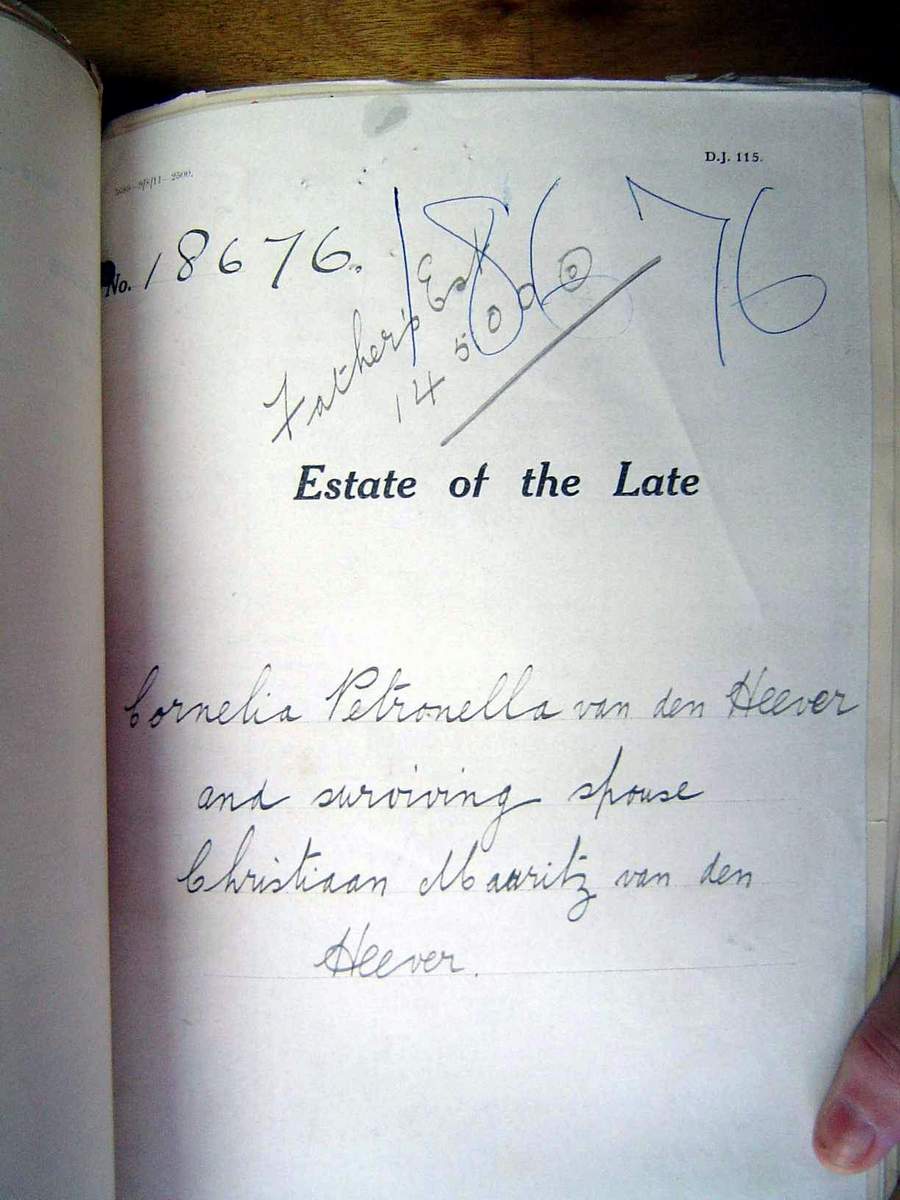 D.J. 115.
No. 18676.
18676
Father's Est
145000
Estate of the Late
Cornelia Petronella van den Heever
and surviving spouse
Christiaan Mauritz van den
Heever.